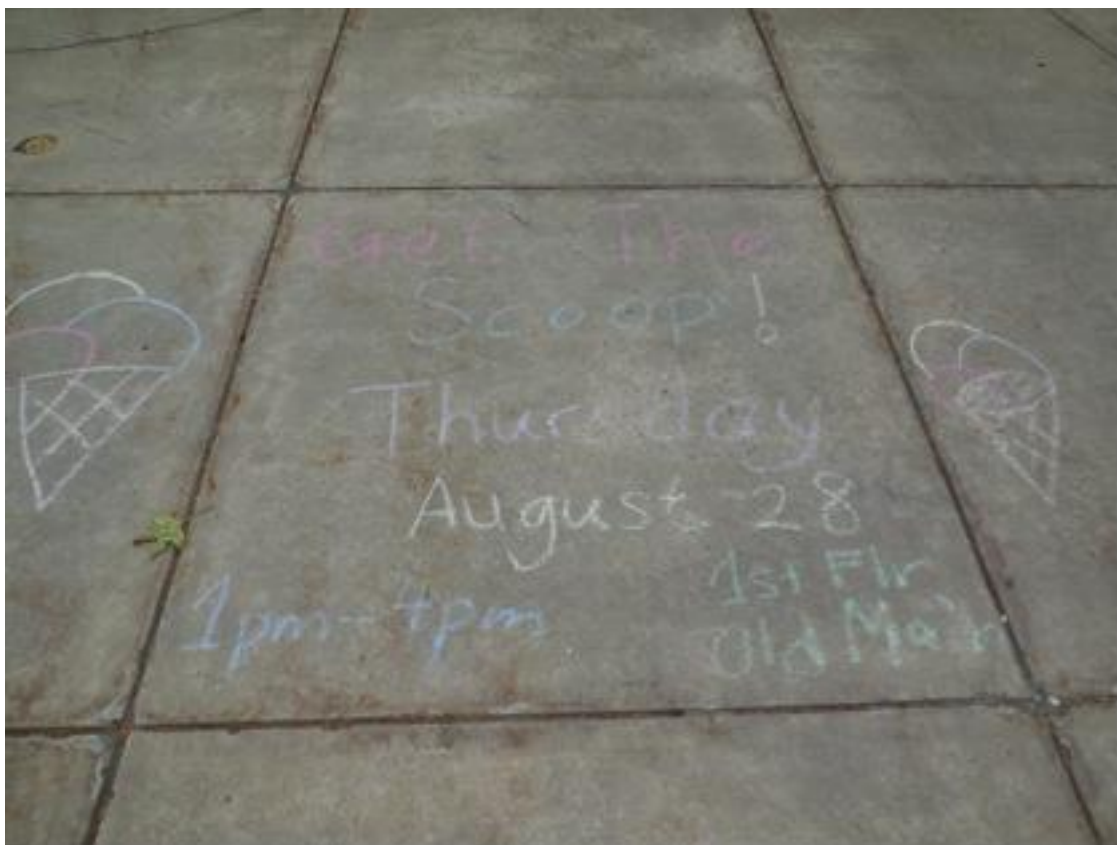 Get The
Scoop!
Thursday
August 28
1pm-4pm
1st Flr
Old Main